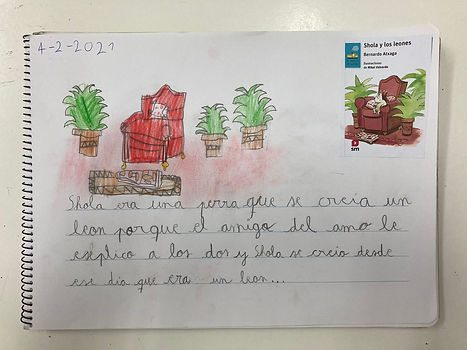 4-2-2021
Shola y los leones
Bernardo Atxaga
Ilustraciones
de Mikel Valverde
sm
Shola era una perra que se creia un
leon porque el amigo del amo le
esplico a los dos y Shola se creio desde
ese dia que era un leon...